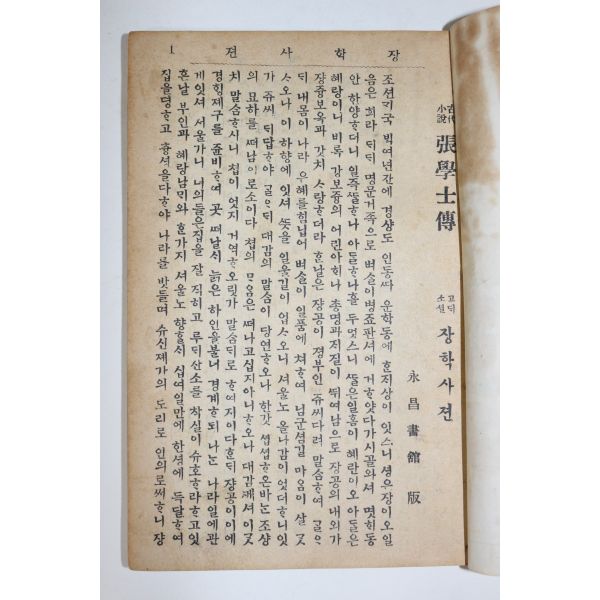 장학사젼 1
古代小說 張學士傳 고대소셜 장학사젼
永昌書館版
조션국 백여년간에 경샹도 인동따 운학동에 한 재상이 잇스니 셩은 장이오 일
음은 희라 대대 명문거족으로 벼슬이 병죠판셔에 거하얏다가 시골와셔 몃해동
안 한양하더니 일즉 딸하나 아들하나흘 두엇스니 딸은 일홈이 혜란이오 아들은
혜랑이니 비록 강보중의 어린아해나 총명과 저질이 뛰여남으로 장공의 내외가
쟝중보옥과 갓치 사랑하더라 하날은 쟝공이 졍부인 쥬씨다려 말슴하여 갈으
되 내 몸이 나라 은혜를 힘닙어 벼슬이 일품에 쳐하여 님군 셤길 마음이 살갓
사오나 이 하향에 잇셔 뜻을 일울 길이 업스오니 셔울노 올나감이 엇더하니잇
가 쥬씨 대답하야 갈으되 대감의 말슴이 당연하오나 한갓 셥셥하온 바는 조샹
의 묘하를 떠남이로소이다 쳡의 마음은 떠나고 십지 아니하오나 대감쎄셔 이갓
치 말슴하시니 쳡이 엇지 거역하오릿가 말슴대로 하여지이다 한대 쟝공이 이에
경행졔구를 쥰비하여 곳 떠날시 늙은 하인을 불너 경계하되 나는 나라일에 관
계잇셔 셔울 가니 너의들은 집을 잘 직히고 루대산소를 착실이 슈호하라 하고 잇
흔날 부인과 혜랑남매와 한가지 셔울노 향할시 십여일만에 한셩에 득달하여
집을 뎡하고 츙셩을 다하야 나라를 밧들며 슈신졔가의 도리로 인의로써 하니 쟝